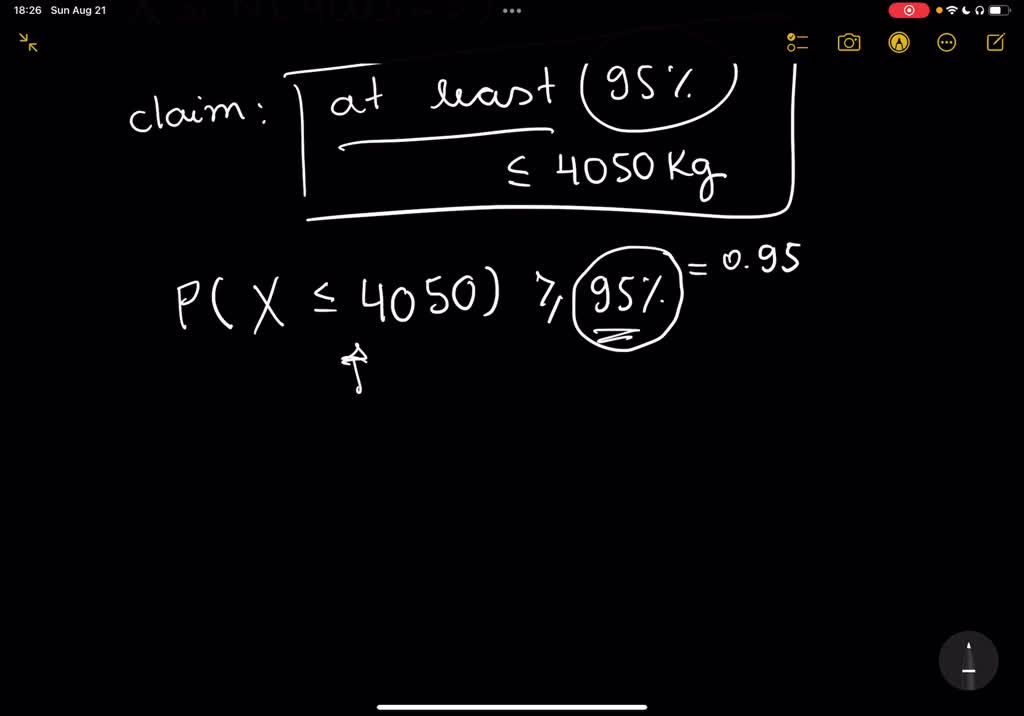 18:26 Sun Aug 21
claim: at least 95%
≤ 4050 Kg
P( X ≤ 4050) ≥ 95% = 0.95